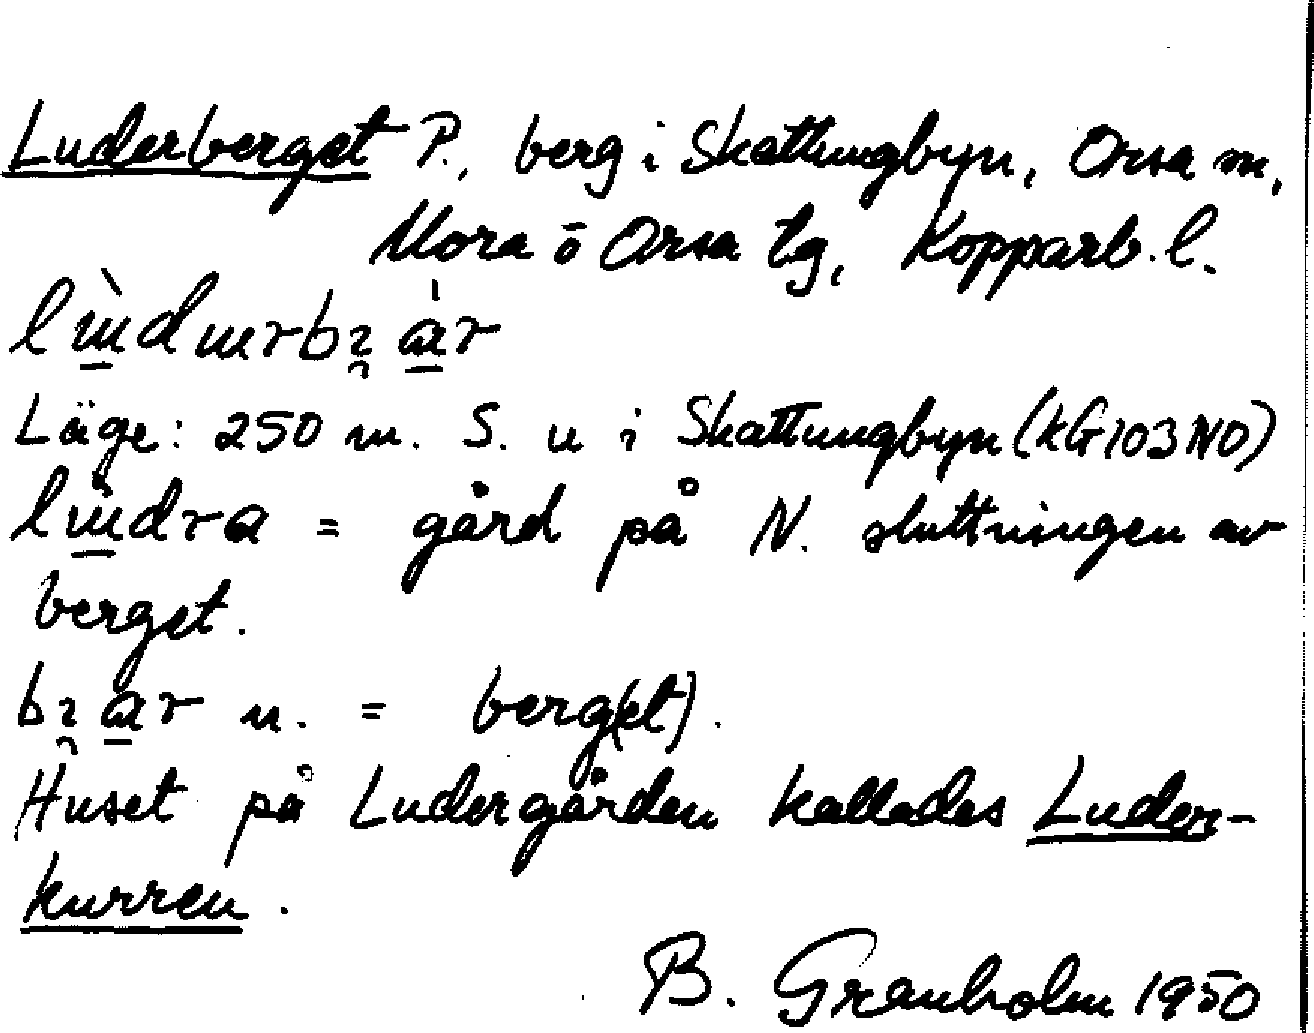 Luderberget P., berg i Skattungbyn, Orsa m,
Mora o Orsa tg, Kopparb. l.
Läge: 250 m. S. u i Skattungbyn (KG103NO)
= gård på N. sluttningen av
berget.
n. = berg(et).
Huset på Ludergården kallades Luder-
kurren.
B. Granholm 1950